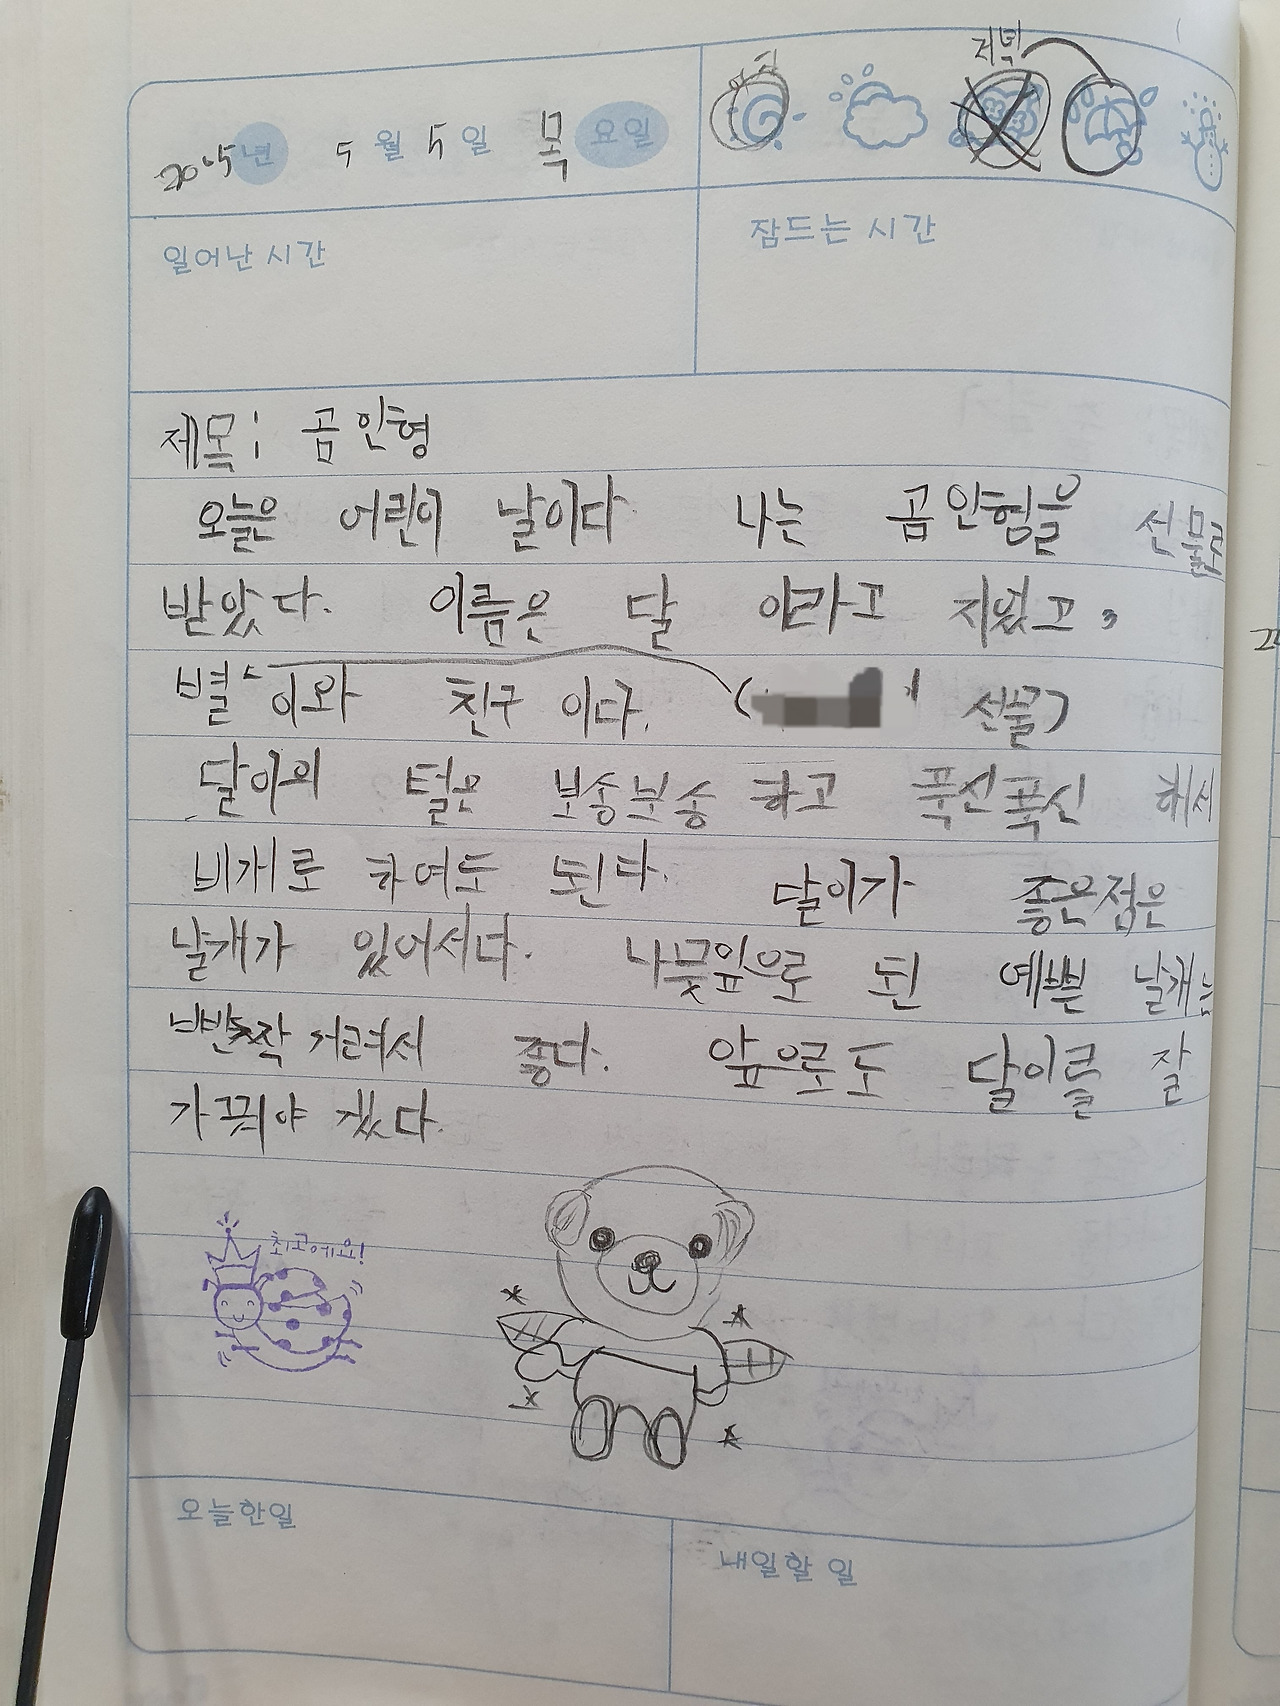 2015년 5월 5일 목요일
아침
저녁
일어난 시간
잠드는 시간
제목: 곰인형
오늘은 어린이 날이다 나는 곰인형을 선물로
받았다. 이름은 달 이라고 지었고,
별이와 친구 이다. ( 선물)
달이의 털은 보송보송 하고 푹신푹신 해서
비개로 하여도 된다. 달이가 좋은점은
날개가 있어서다. 나뭇잎으로 된 예쁜 날개는
반짝 거려서 좋다. 앞으로도 달이를 잘
가꿔야 겠다.
최고예요!
오늘한일
내일할 일